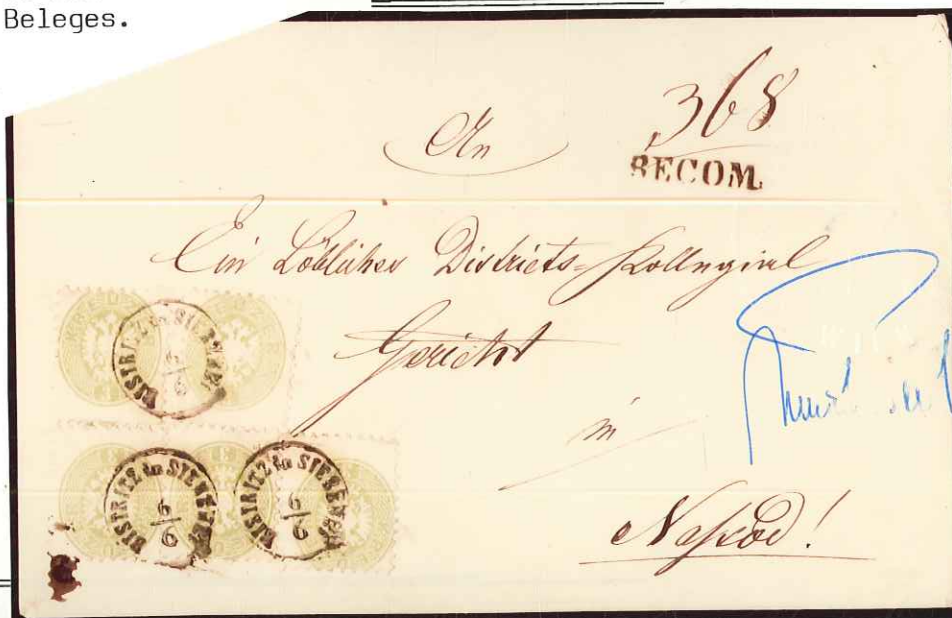 Beleges.
368
An
RECOM.
Ein Löbliches Districts-Kollegial
Gericht
in
Naszod!
BISTRITZ in SIEBENB:
6/6
BISTRITZ in SIEBENB:
6/6
BISTRITZ in SIEBENB:
6/6